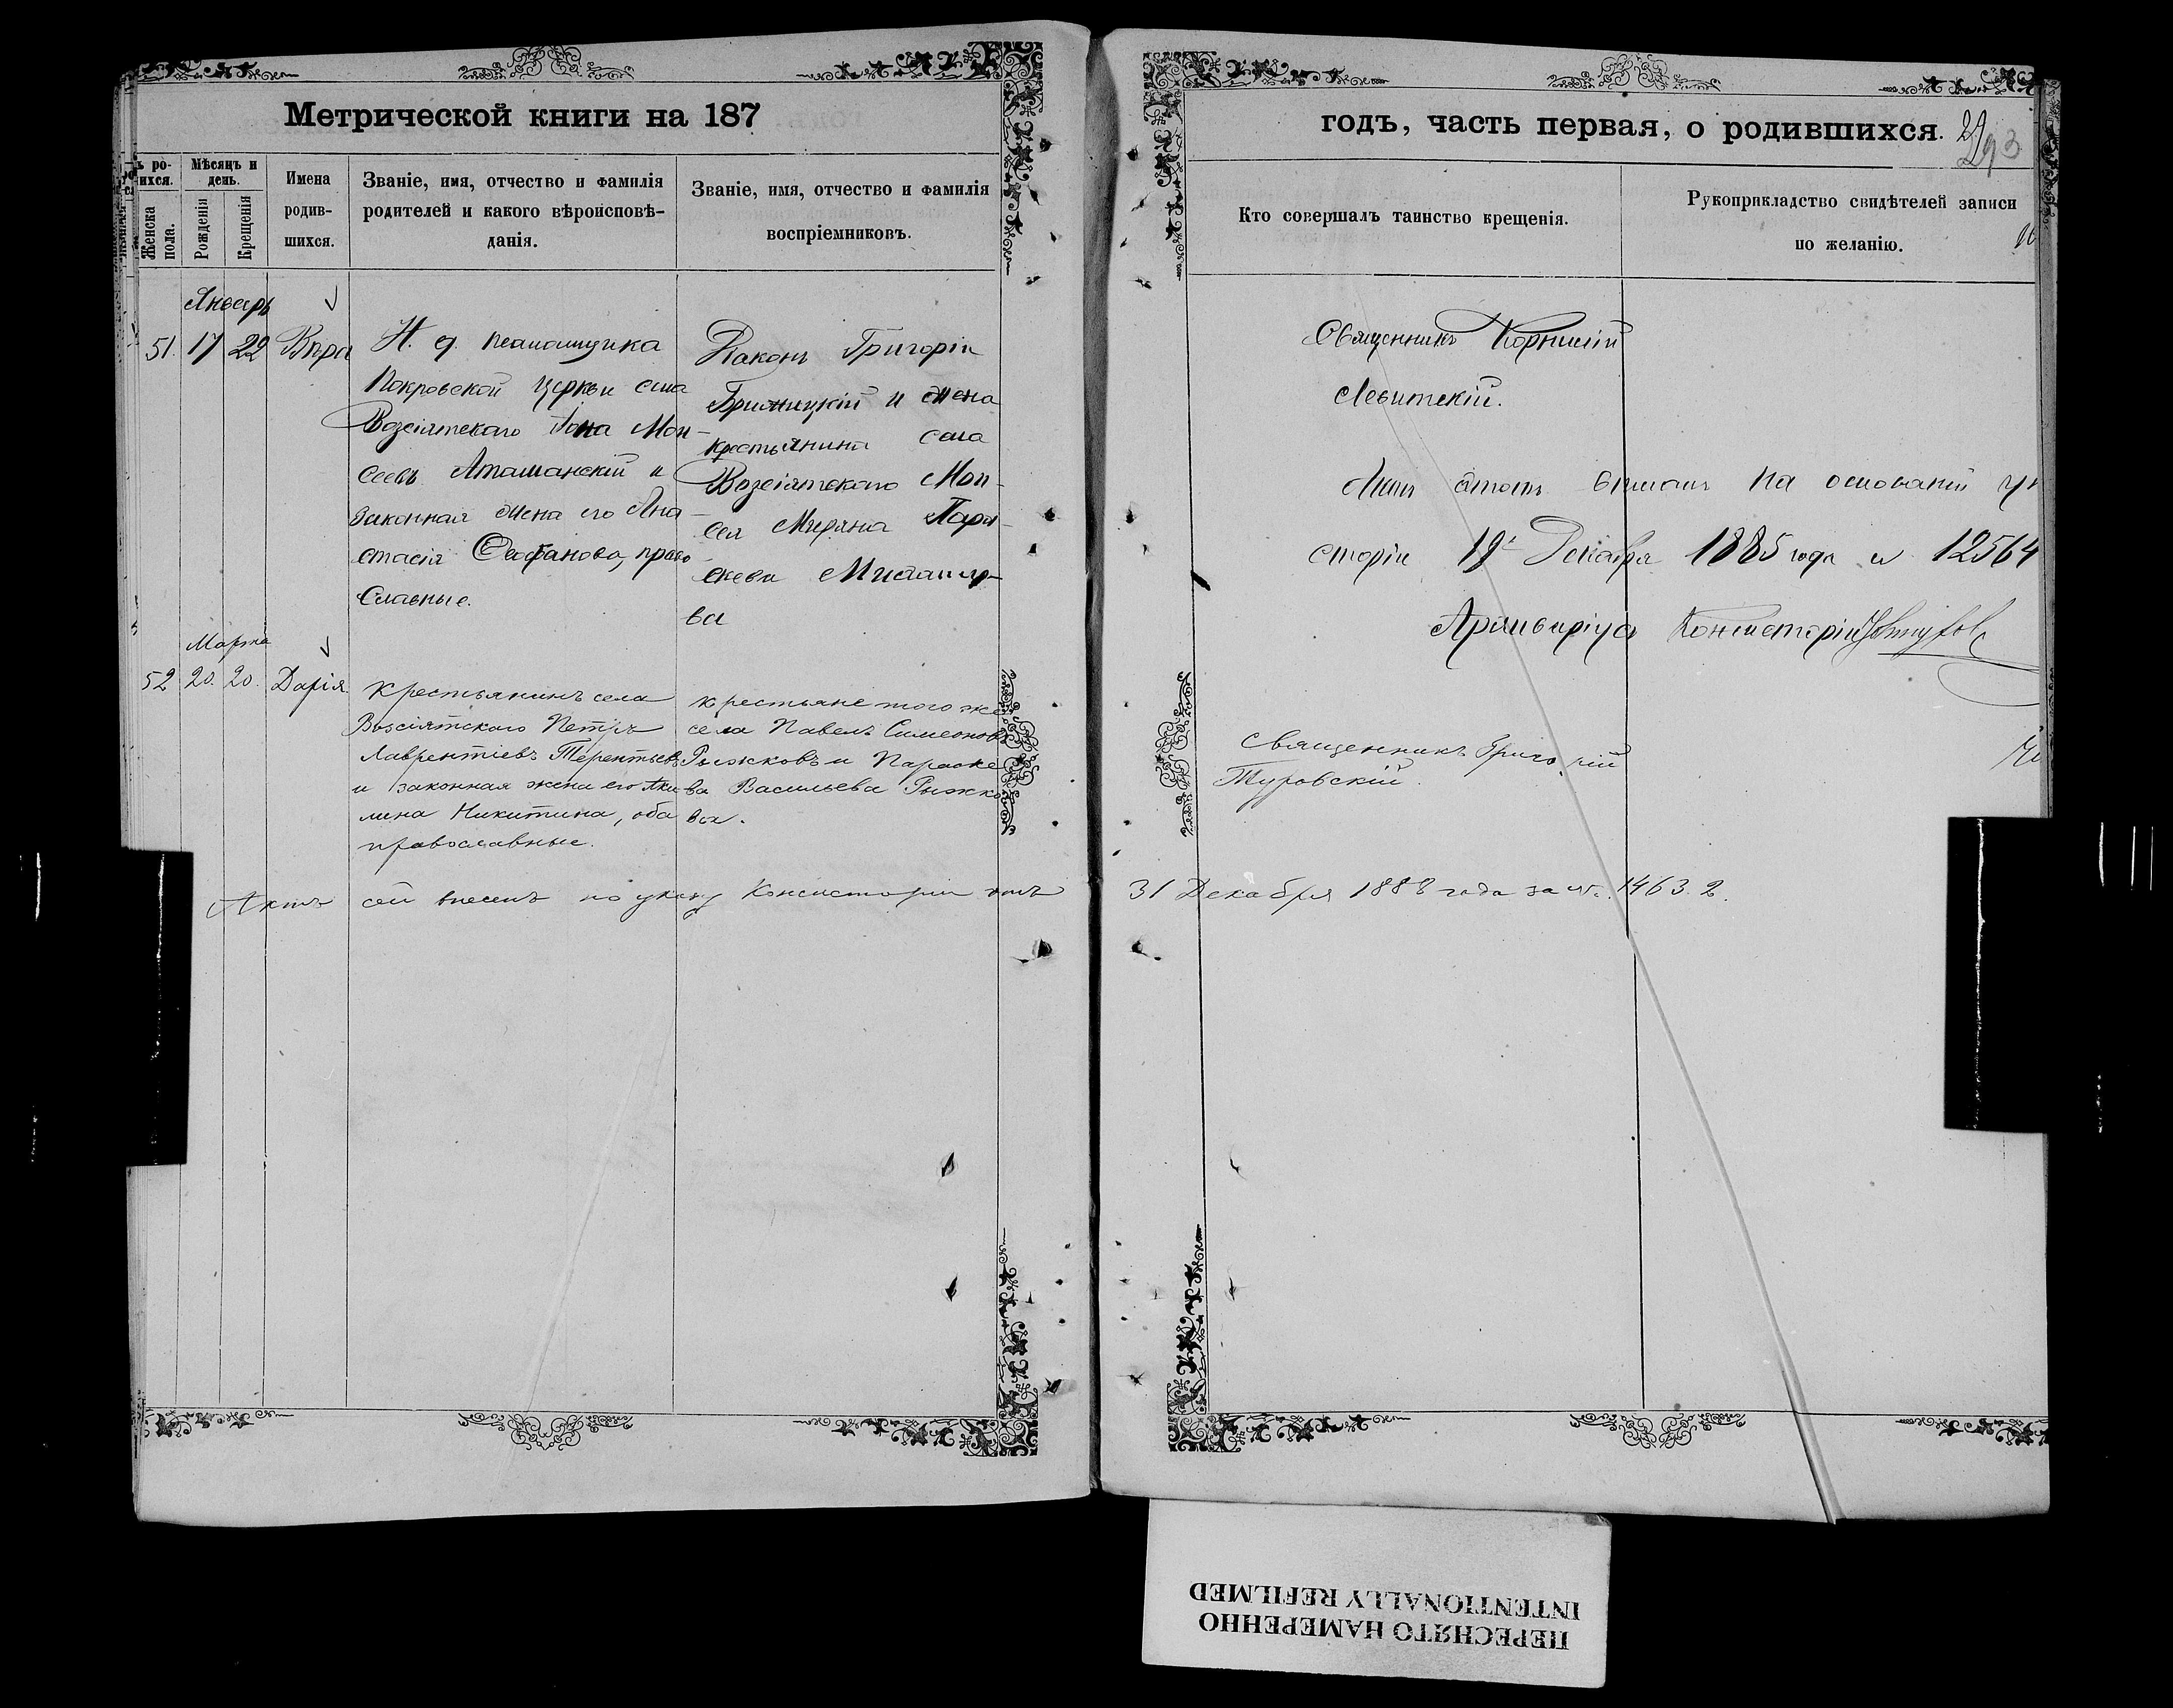 Метрической книги на 187
годъ, часть первая, о родившихся.
293
ъ ро-
ихся.
Женска
пола.
Мѣсяцъ и
день.
Рожденія
Крещенія
Имена
родив-
шихся.
Званіе, имя, отчество и фамилія
родителей и какого вѣроисповѣ-
данія.
Званіе, имя, отчество и фамилія
воспріемниковъ.
Кто совершалъ таинство крещенія.
Рукоприкладство свидѣтелей записи
по желанію.
Январь
51. 17 22 Вѣра
И. д. псаломщика
Покровской церкви села
Возсіятскаго Іона Мои-
сеевъ Аташанскій и
законная жена его Ана-
стасія Стефанова, право-
славные.
Діаконъ Григорій
и жена
крестьянина села
Возсіятскаго Мои-
сея Пара-
скева
ва
Священникъ Корнилій
Левитскій.
Актъ этотъ вписанъ на основаніи ук
сторіи 19 Декабря 1885 года № 12564
Архиваріуса Консисторіи
Марта
52 20. 20. Дарія
Крестьянинъ села
Возсіятскаго Петръ
Лаврентіевъ Терентьевъ
и законная жена его Аки-
лина Никитина, оба
православные.
крестьяне того же
села Павелъ Симеоновъ
Рыжковъ и Параске-
ва Васильева Рыжко
ва.
Священникъ Григорій
Туровскій.
Актъ сей внесенъ по указу Консисторіи отъ 31 Декабря 1888 года за № 1463.2.
ПЕРЕСНЯТО НАМЕРЕННО
INTENTIONALLY REFILMED